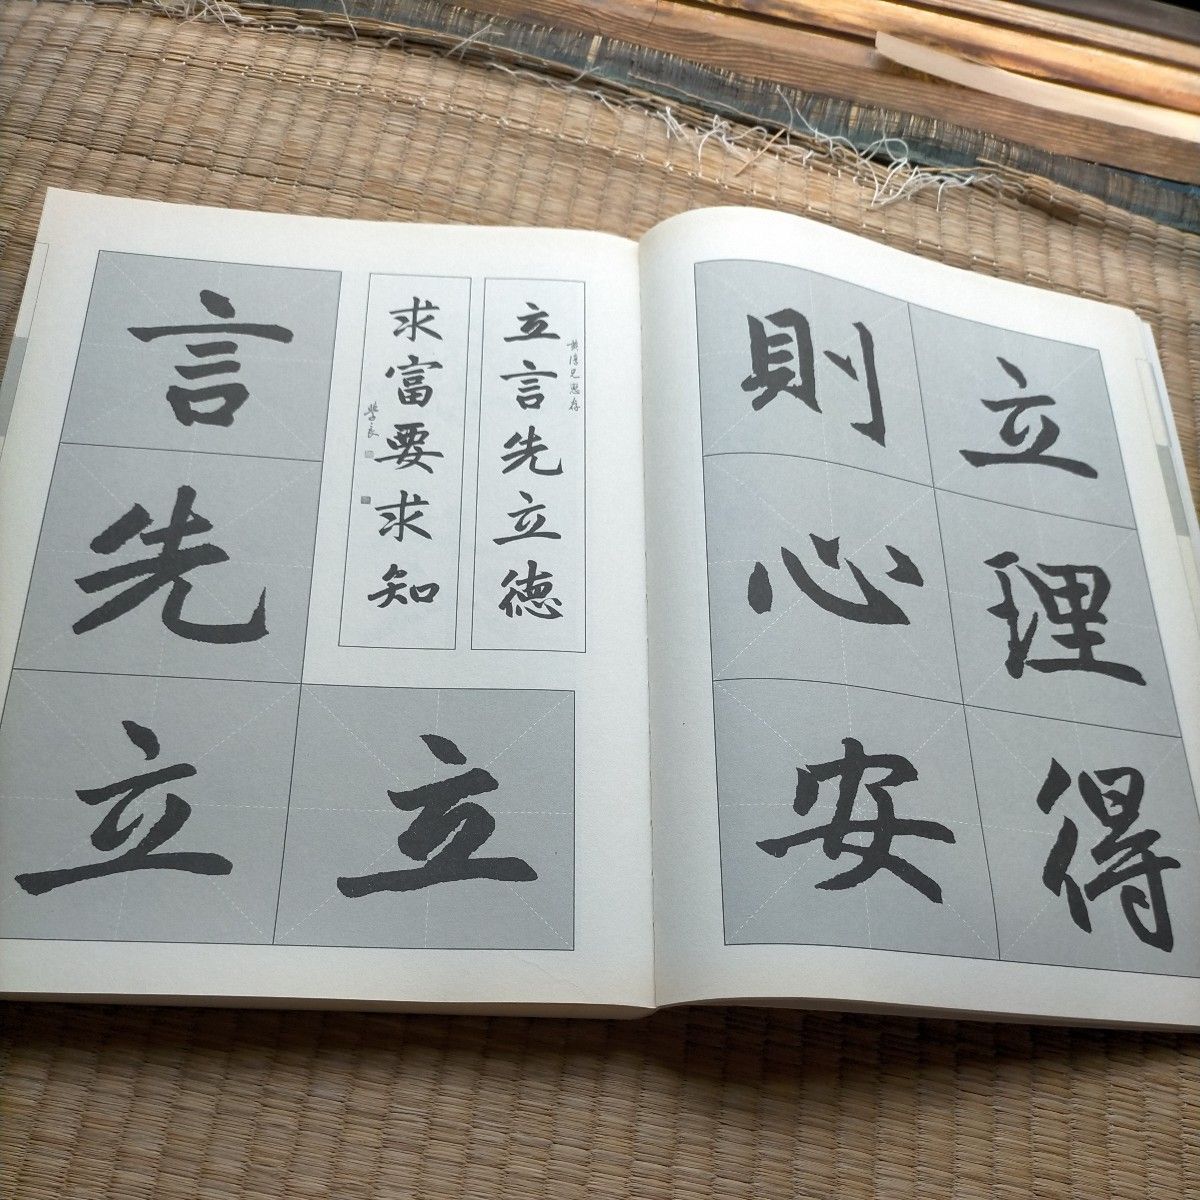 立理得
則心安
立言先立德
兄惠存
求富要求知
學良
立
言先立